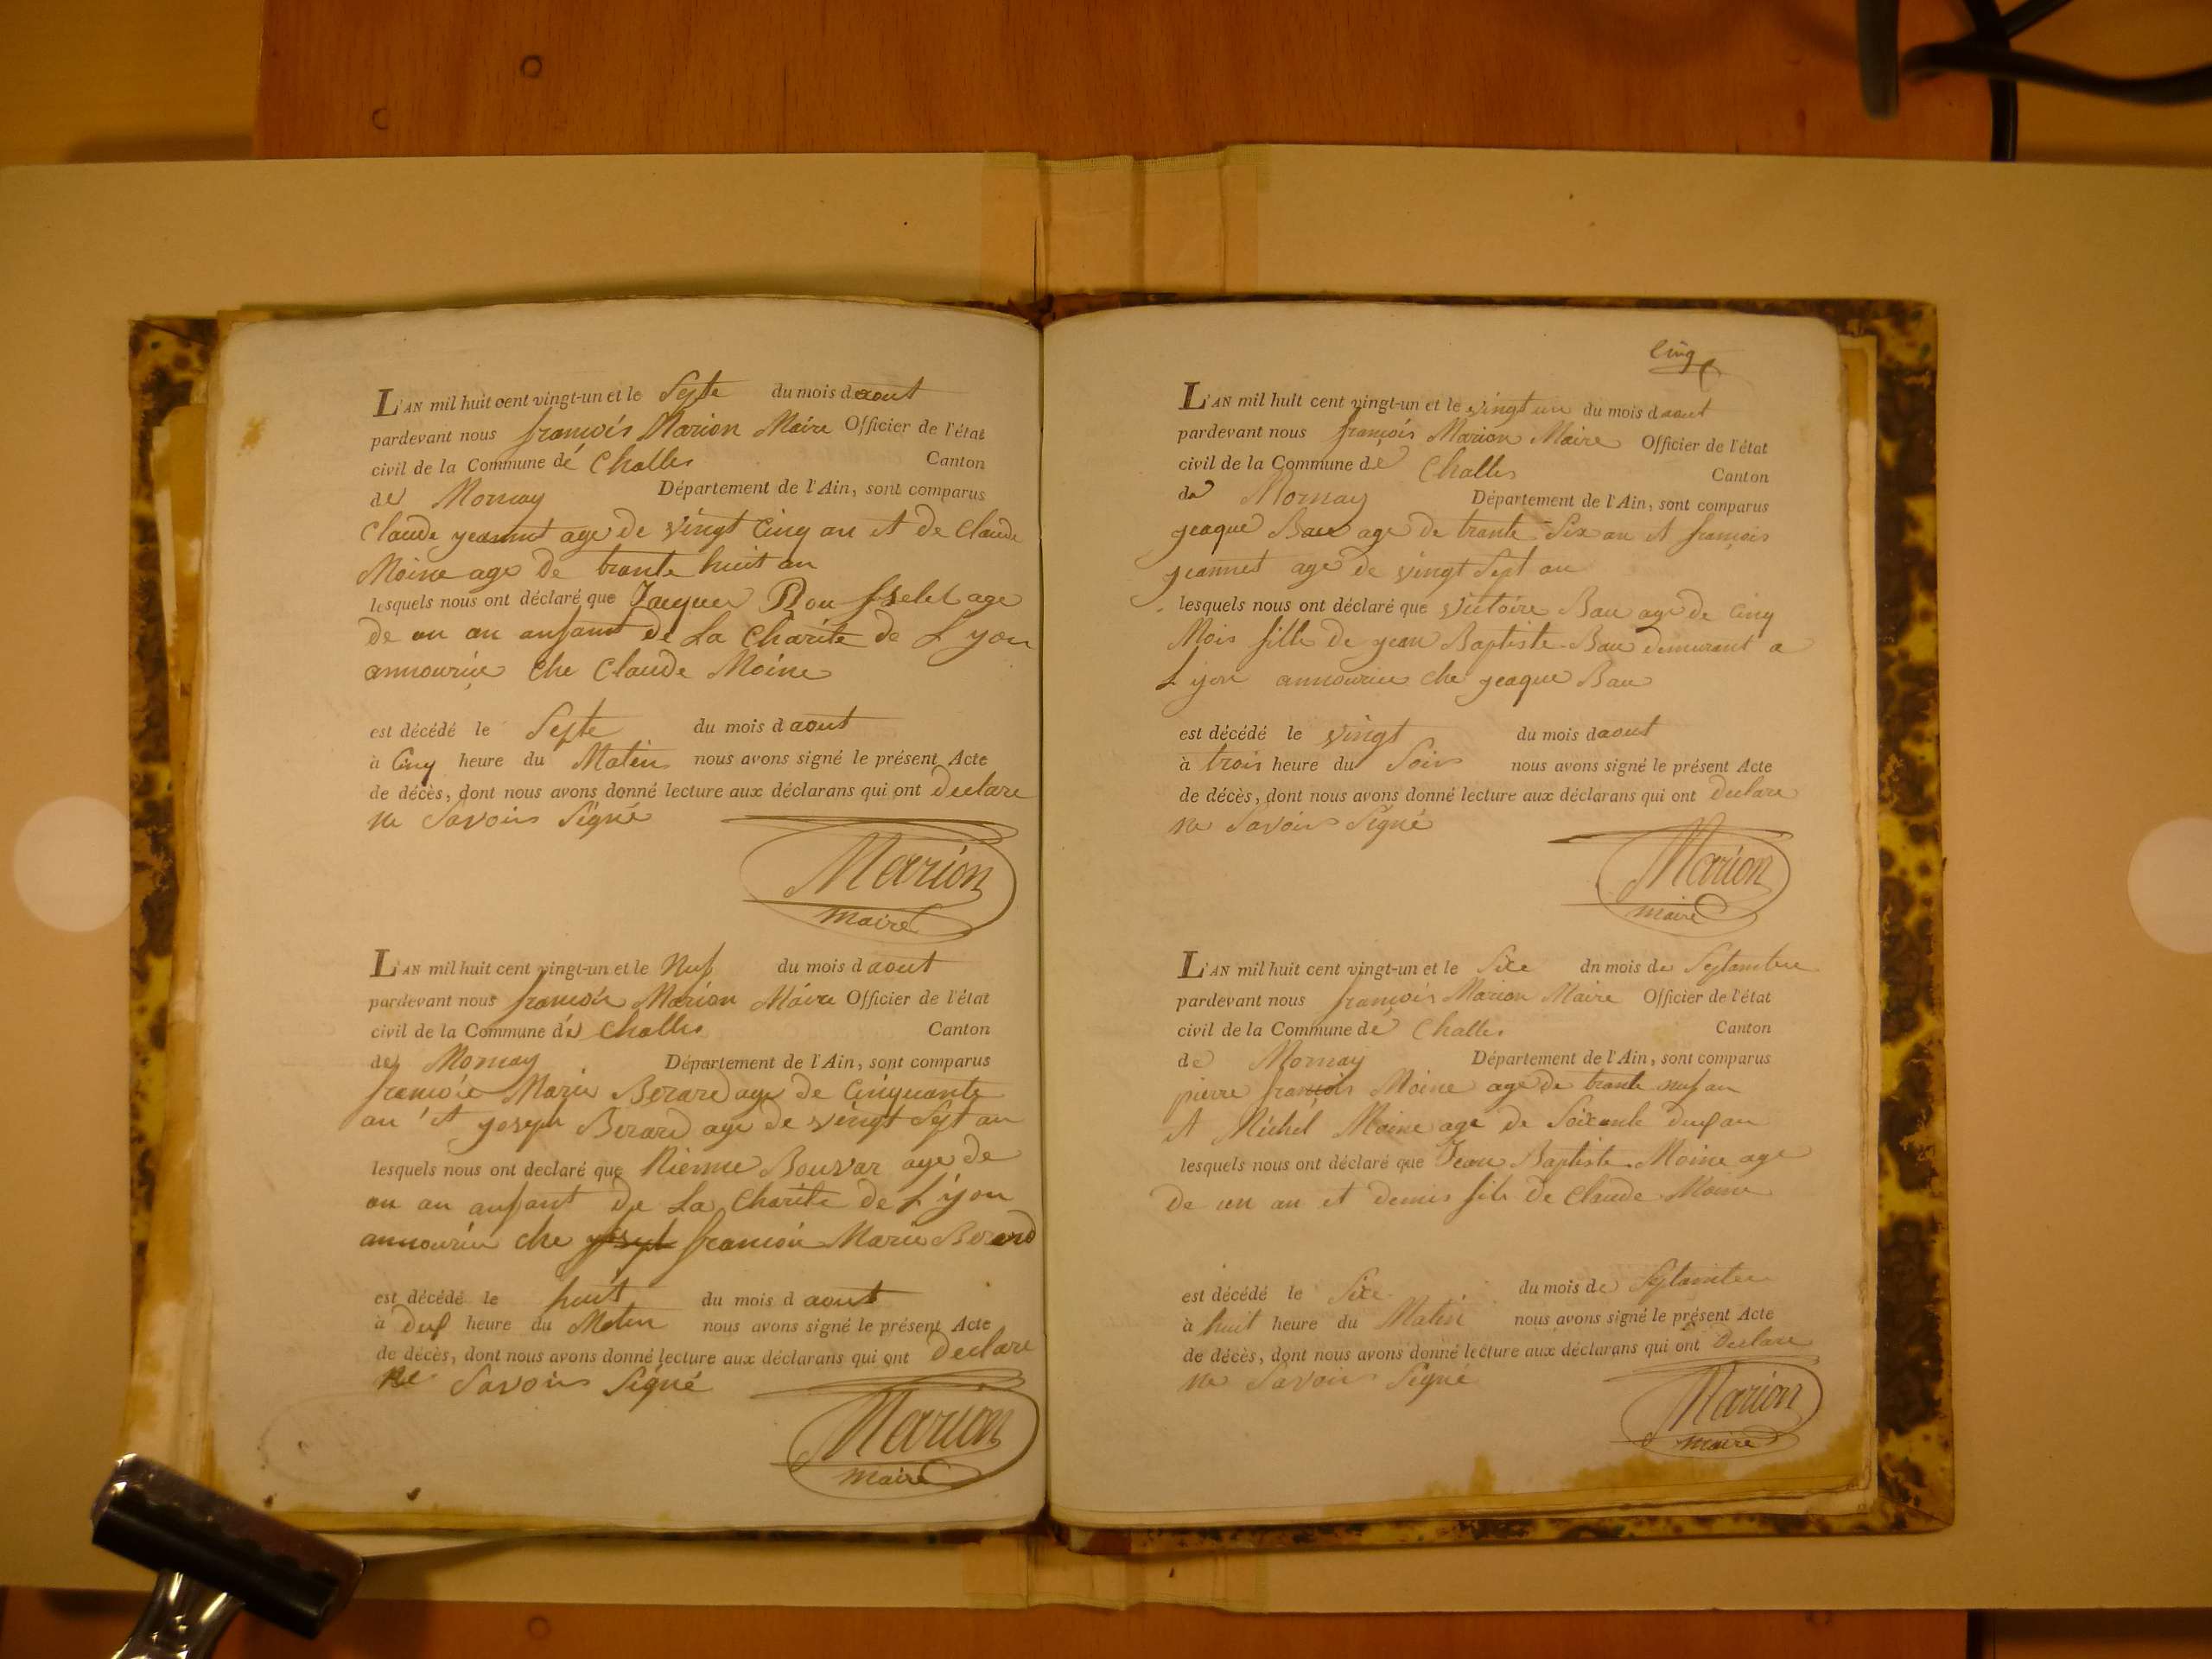 L'AN mil huit cent vingt-un et le Septe du mois daout
pardevant nous françois Marion Maire Officier de l'état
civil de la Commune de Challes Canton
de Mornay Département de l'Ain, sont comparus
Claude jeannet age de vingt Cinq an et de Claude
Moine age de trante huit an
lesquels nous ont déclaré que Jacques Rousselet age
de un an anfant de La Charite de Lyon
annourice che Claude Moine
est décédé le Septe du mois daout
à Cinq heure du Matin nous avons signé le présent Acte
de décès, dont nous avons donné lecture aux déclarans qui ont Declare
ne Savoir Signé
Marion
maire
L'AN mil huit cent vingt-un et le Nuf du mois daout
pardevant nous françois Marion Maire Officier de l'état
civil de la Commune de Challes Canton
de Mornay Département de l'Ain, sont comparus
françois Marie Berard age de Cinquante
an et joseph Berard age de vingt Sept an
lesquels nous ont declaré que Bouvar age de
un an anfant de La Charite de Lyon
annourice che joseph françois Marie Berard
est décédé le huit du mois daout
à duf heure du Matin nous avons signé le présent Acte
de décès, dont nous avons donné lecture aux déclarans qui ont Declare
ne Savoir Signé
Marion
maire
Cinq
L'AN mil huit cent vingt-un et le vingt un du mois daout
pardevant nous françois Marion Maire Officier de l'état
civil de la Commune de Challes Canton
de Mornay Département de l'Ain, sont comparus
jeaque Bau age de trante Six an et françois
jeannet age de vingt Sept an
lesquels nous ont déclaré que victoire Bau age de Cinq
Mois fille de jean Baptiste Bau demurant a
Lyon annourice che jeaque Bau
est décédé le vingt du mois daout
à trois heure du Soir nous avons signé le présent Acte
de décès, dont nous avons donné lecture aux déclarans qui ont Declare
ne Savoir Signé
Marion
maire
L'AN mil huit cent vingt-un et le Sixe dn mois de Septambre
pardevant nous françois Marion Maire Officier de l'état
civil de la Commune de Challes Canton
de Mornay Département de l'Ain, sont comparus
pierre françois Moine age de trante nuf an
et Michel Moine age de Soixante duf an
lesquels nous ont déclaré que Jean Baptiste Moine age
de un an et demis fils de Claude Moine
est décédé le Sixe du mois de Septambre
à huit heure du Matin nous avons signé le présent Acte
de décès, dont nous avons donné lecture aux déclarans qui ont Declare
ne Savoir Signé
Marion
maire